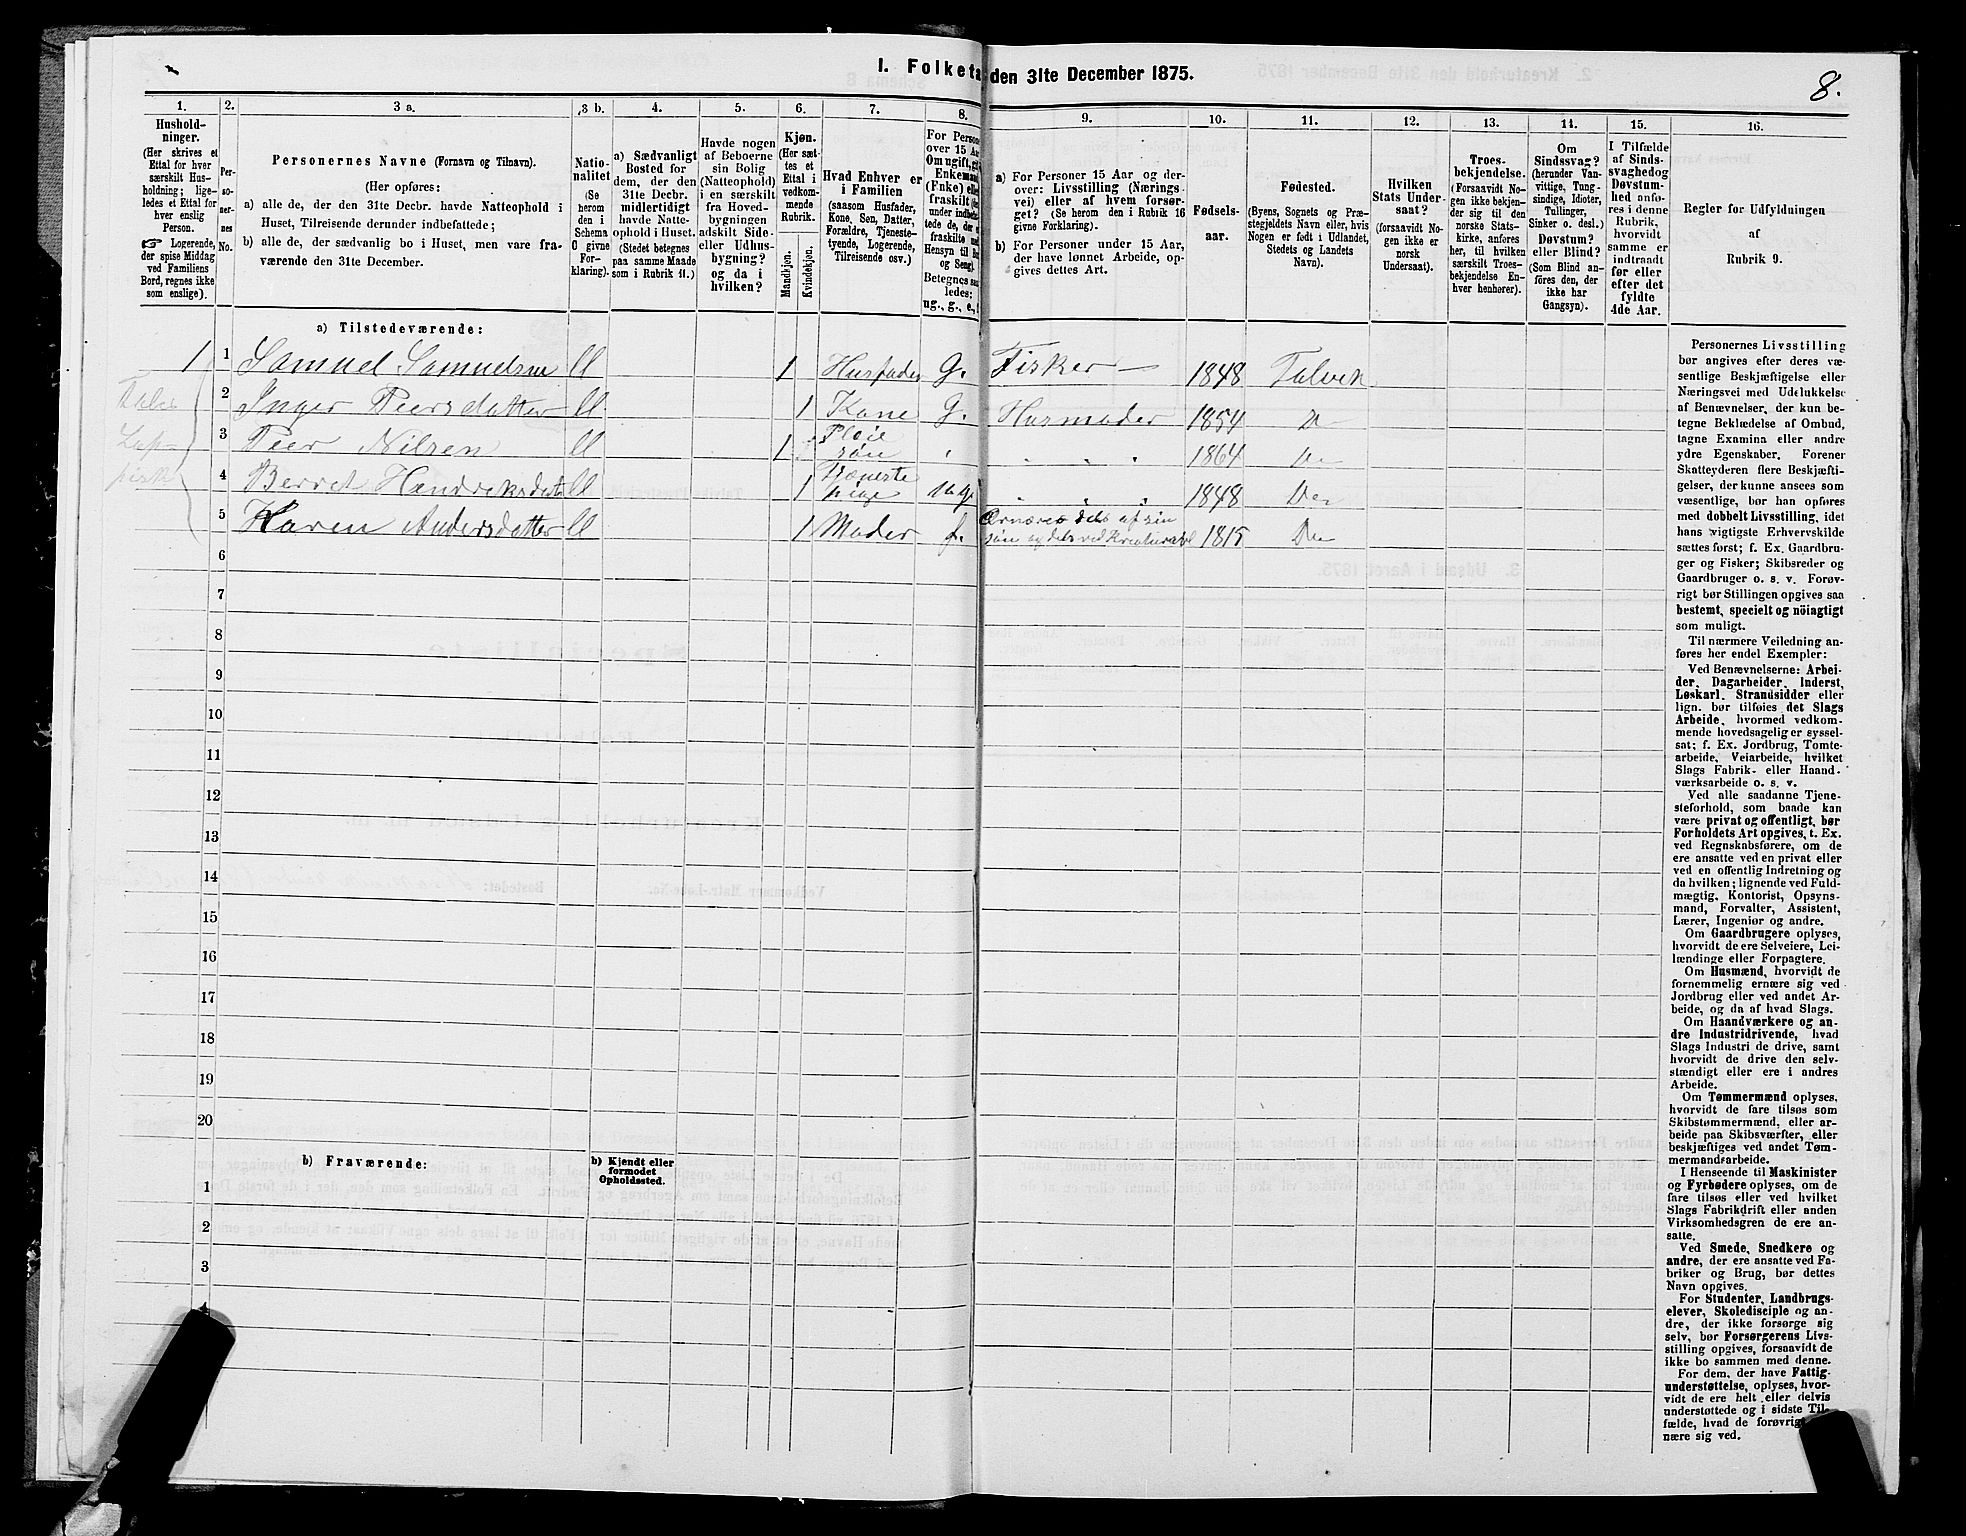 I. Folketæ den 31te December 1875.
8.
1. 2. 3 a. 3 b. 4. 5. 6. 7. 8. 9. 10. 11. 12. 13. 14. 15. 16.
Hushold-
ninger.
(Her skrives et
Ettal for hver
særskilt Hus-
holdning; lige-
ledes et Ettal for
hver enslig
Person.
☞ Logerende,
der spise Middag
ved Familiens
Bord, regnes ikke
som enslige).
Per-
so-
ner-
nes
No.
Personernes Navne (Fornavn og Tilnavn).
(Her opføres:
a) alle de, der den 31te Decbr. havde Natteophold i
Huset, Tilreisende derunder indbefattede;
b) alle de, der sædvanlig bo i Huset, men vare fra-
værende den 31te December.
Natio-
nalitet
(Se
herom
den i
Schema
C givne
For-
klaring).
a) Sædvanligt
Bosted for
dem, der den
31te Decbr.
midlertidigt
havde Natte-
ophold i Huset.
(Stedet betegnes
paa samme Maade
som i Rubrik 11.)
Havde nogen
af Beboerne
sin Bolig
(Natteophold)
i en særskilt
fra Hoved-
bygningen
adskilt Side-
eller Udhus-
bygning?
og da i
hvilken?
Kjøn.
(Her sæt-
tes et
Ettal i
vedkom-
mende
Rubrik.
Mandkjøn.
Kvindekjøn.
Hvad Enhver er
i Familien
(saasom Husfader,
Kone, Søn, Datter,
Forældre, Tjeneste-
tyende, Logerende,
Tilreisende osv.)
For Person
over 15 A
Om ugift, g
Enkeman
(Fnke) elle
fraskilt (de
under indbe
tede de, der
fraskilte m
Hensyn til Bo
og Seng).
Betegnes sa
ledes:
ug., g., e.,
a) For Personer 15 Aar og der-
over: Livsstilling (Nærings-
vei) eller af hvem forsør-
get? (Se herom den i Rubrik 16
givne Forklaring).
b) For Personer under 15 Aar,
der have lønnet Arbeide, op-
gives dettes Art.
Fødsels-
aar.
Fødested.
(Byens, Sognets og Præ-
stegjeldets Navn eller, hvis
Nogen er født i Udlandet,
Stedets og Landets
Navn).
Hvilken
Stats Under-
saat?
(forsaavidt No-
gen ikke er
norsk
Undersaat).
Troes-
bekjendelse.
(Forsaavidt No-
gen ikke bekjen-
der sig til den
norske Stats-
kirke, anføres
her, til hvilken
særskilt Troes-
bekjendelse En-
hver henhører).
Om
Sindssvag?
(herunder Van-
vittige, Tung-
sindige, Idioter,
Tullinger,
Sinker o. desl.)
Døvstum?
eller Blind?
(Som Blind an-
føres den, der
ikke har
Gangsyn).
I Tilfælde
af Sinds-
svaghed og
Døvstum-
hed anfø-
res i denne
Rubrik,
hvorvidt
samme er
indtraadt
før eller
efter det
fyldte
4de Aar.
Regler for Udfyldningen
af
Rubrik 9.
a) Tilstedeværende:
1 1 Samuel Samuelsen ll 1 Husfader G. Fisker – 1848 Talvik
2 Inger Peersdatter ll 1 Kone G. Husmoder 1854 D
3 Peer Nilsen ll 1 Pleie søn 1864 Do
4 Berret Hendriksdat ll 1 Tjeneste pige ug. 1848 Do
5 Karen Andersdatter ll 1 Moder f. Ernæres dels af sin
søn og dels ved Kreaturavl 1815 Do
6
7
8
9
10
11
12
13
14
15
16
17
18
19
20
b) Fraværende:
b) Kjendt eller
formodet
Opholdssted.
1
2
3
4
Personernes Livsstilling
bør angives efter deres væ-
sentlige Beskjæftigelse eller
Næringsvei med Udelukkelse
af Benævnelser, der kun be-
tegne Beklædelse af Ombud,
tagne Examina eller andre
ydre Egenskaber. Forener
Skatteyderen flere Beskjæfti-
gelser, der kunne ansees som
væsentlige, bør han opføres
med dobbelt Livsstilling, idet
hans vigtigste Erhvervskilde
sættes først; f. Ex. Gaardbru-
ger og Fisker; Skibsreder og
Gaardbruger o. s. v. Forøv-
rigt bør Stillingen opgives saa
bestemt, specielt og nöiagtigt
som muligt.
Til nærmere Veiledning an-
føres her endel Exempler:
Ved Benævnelserne: Arbei-
der, Dagarbeider, Inderst,
Løskarl, Strandsidder eller
lign. bør tilføies det Slags
Arbeide, hvormed vedkom-
mende hovedsagelig er syssel-
sat; f. Ex. Jordbrug, Tomte-
arbeide, Veiarbeide, hvilket
Slags Fabrik- eller Haand-
værksarbeide o. s. v.
Ved alle saadanne Tjene-
steforhold, som baade kan
være privat og offentligt, bør
Forholdets Art opgives, t. Ex.
ved Regnskabsførere, om de
ere ansatte ved en privat eller
ved en offentlig Indretning og
da hvilken; lignende ved Fuld-
mægtig, Kontorist, Opsyns-
mand, Forvalter, Assistent,
Lærer, Ingeniør og andre.
Om Gaardbrugere oplyses,
hvorvidt de ere Selveiere, Lei-
lændinge eller Forpagtere.
Om Husmænd, hvorvidt de
fornemmelig ernære sig ved
Jordbrug eller ved andet Ar-
beide, og da af hvad Slags.
Om Haandværkere og an-
dre Industridrivende, hvad
Slags Industri de drive, samt
hvorvidt de drive den selv-
stændigt eller ere i andres
Arbeide.
Om Tømmermænd oplyses,
hvorvidt de fare tilsøs som
Skibstømmermænd, eller ar-
beide paa Skibsværfter, eller
beskjæftiges ved andet Tøm-
mermandsarbeide.
I Henseende til Maskinister
og Fyrbødere oplyses, om de
fare tilsøs eller ved hvilket
Slags Fabrikdrift eller anden
Virksomhedsgren de ere an-
satte.
Ved Smede, Snedkere og
andre, der ere ansatte ved Fa-
briker og Brug, bør dettes
Navn opgives.
For Studenter, Landbrugs-
elever, Skoledisciple og an-
dre, der ikke forsørge sig
selv, bør Forsørgerens Livs-
stilling opgives, forsaavidt de
ikke bo sammen med denne.
For dem, der have Fattig-
understøttelse, oplyses, hvor-
vidt de ere helt eller delvis
understøttede og i sidste Til-
fælde, hvad de forøvrigt
nære sig ved.